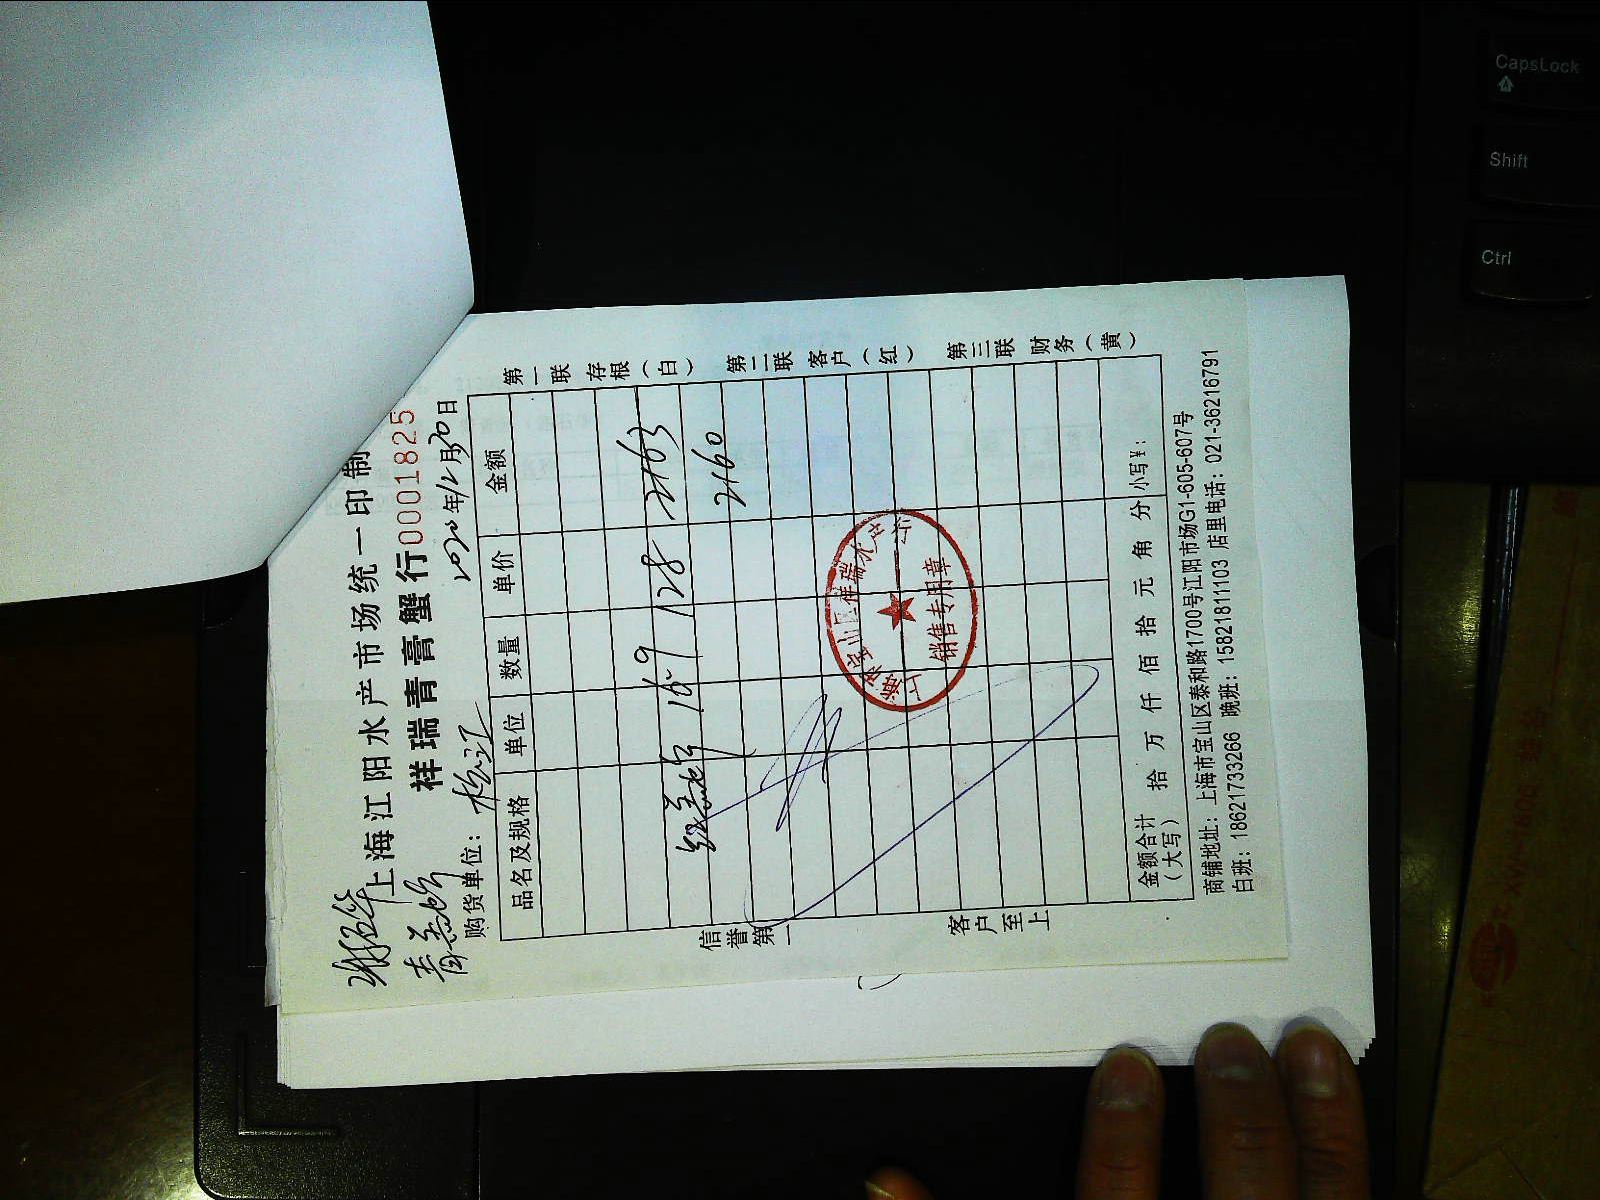 上海江阳水产市场统一印制
祥瑞青膏蟹行 0001825
购货单位： 松江 2020年12月30日
品名及规格 单位 数量 单价 金额
16.9 128 2163
2160
信誉第一
客户至上
第一联 存根（白） 第二联 客户（红） 第三联 财务（黄）
上海市宝山区祥瑞水产
销售专用章
金额合计（大写） 拾 万 仟 佰 拾 元 角 分 小写¥：
商铺地址：上海市宝山区泰和路1700号江阳市场G1-605-607号
白班：18621733266 晚班：15821811103 店里电话：021-36216791
CapsLock
Shift
Ctrl